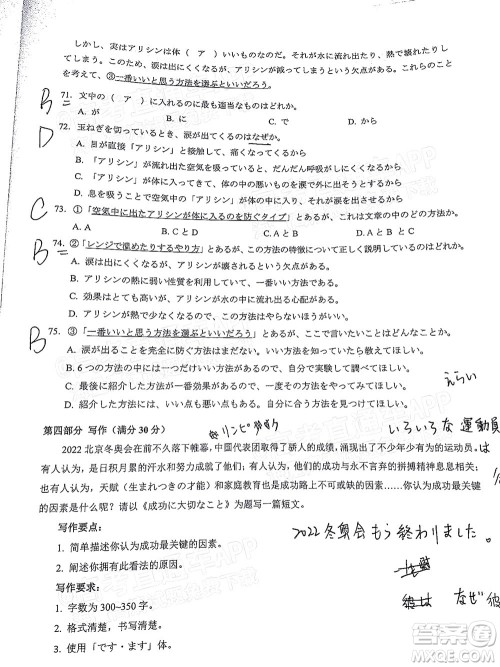 しかし、実はアリシンは体（　ア　）いいものなのだ。それが水に流れ出たり、壊れたりし
てしまう。このため、涙は出にくくなるが、アリシンが減ってしまうという欠点がある。
さて、③一番いいと思う方法を選ぶといいだろう。
B 71. 文中の（　ア　）に入れるのに最も適当なものはどれか。
A. が　B. に　C. は　D. で
D 72. 玉ねぎを切っているとき、涙が出てくるのはなぜか。
A. 目が直接「アリシン」と接触して、痛くなってくるから
B. 「アリシン」が流れ出た空気を吸っていると、だんだん呼吸がしにくくなるから
C. 「アリシン」が体に入ってきて、体の中の悪いものを外に流そうとするから
D. 吸い込んだ空気の中の「アリシン」を体の外に流そうとしているから
C 73. ①「空気中に出たアリシンが体に入るのを防ぐタイプ」とあるが、これは文章の中のどの方法か。
A. A　B. A と B　C. A と C　D. B と C
B 74. ②「レンジで温めたりするやり方」とあるが、この方法の特徴について正しく説明しているのはどれか。
A. 涙は出にくくなるが、アリシンが増えてしまうという欠点がある。
B. アリシンの熱に弱い性質を利用した方法で、一番いい方法である。
C. 効果はとても高いが、アリシンが体の外に流れ出る心配がある。
D. アリシンが減ってしまうが、体にいい効果がある。
B 75. ③「一番いいと思う方法を選ぶといいだろう」とあるが、ここで言いたいことはどんなことか。
A. 涙が出ることを完全に防ぐ方法はまだないので、知っていたら教えてほしい。
B. 6 つの方法の中には一つだけいい方法があるので、それを選んでほしい。
C. 紹介した方法には良い点も悪い点もあるので、自分に合った方法を選んでほしい。
D. 最後に紹介した方法が最も効果的なので、ぜひ使ってみてほしい。
えらい
第四部分　写作（满分 30 分）
いろいろな 運動員
2022 北京冬奥会在前不久落下帷幕,中国代表团取得了骄人的成绩,涌现出了不少年少有为的运动员。
有人认为,是日积月累的汗水和努力成就了他们,有人认为,他们的成功与永不言弃的拼搏精神息息相关,
也有人认为,天赋（生まれつきの才能）和家庭教育也是成功路上不可或缺的因素。你认为成功最关键
的因素是什么呢？请以《成功に大切なこと》为题写一篇短文。
写作要点：
2022冬奥会もう終わりました。
1. 简单描述你认为成功最关键的因素。
2. 阐述你拥有此看法的原因。
なぜ彼
写作要求：
1. 字数为 300~350 字。
2. 格式清楚，书写清楚。
3. 使用「です・ます」体。
答案圈